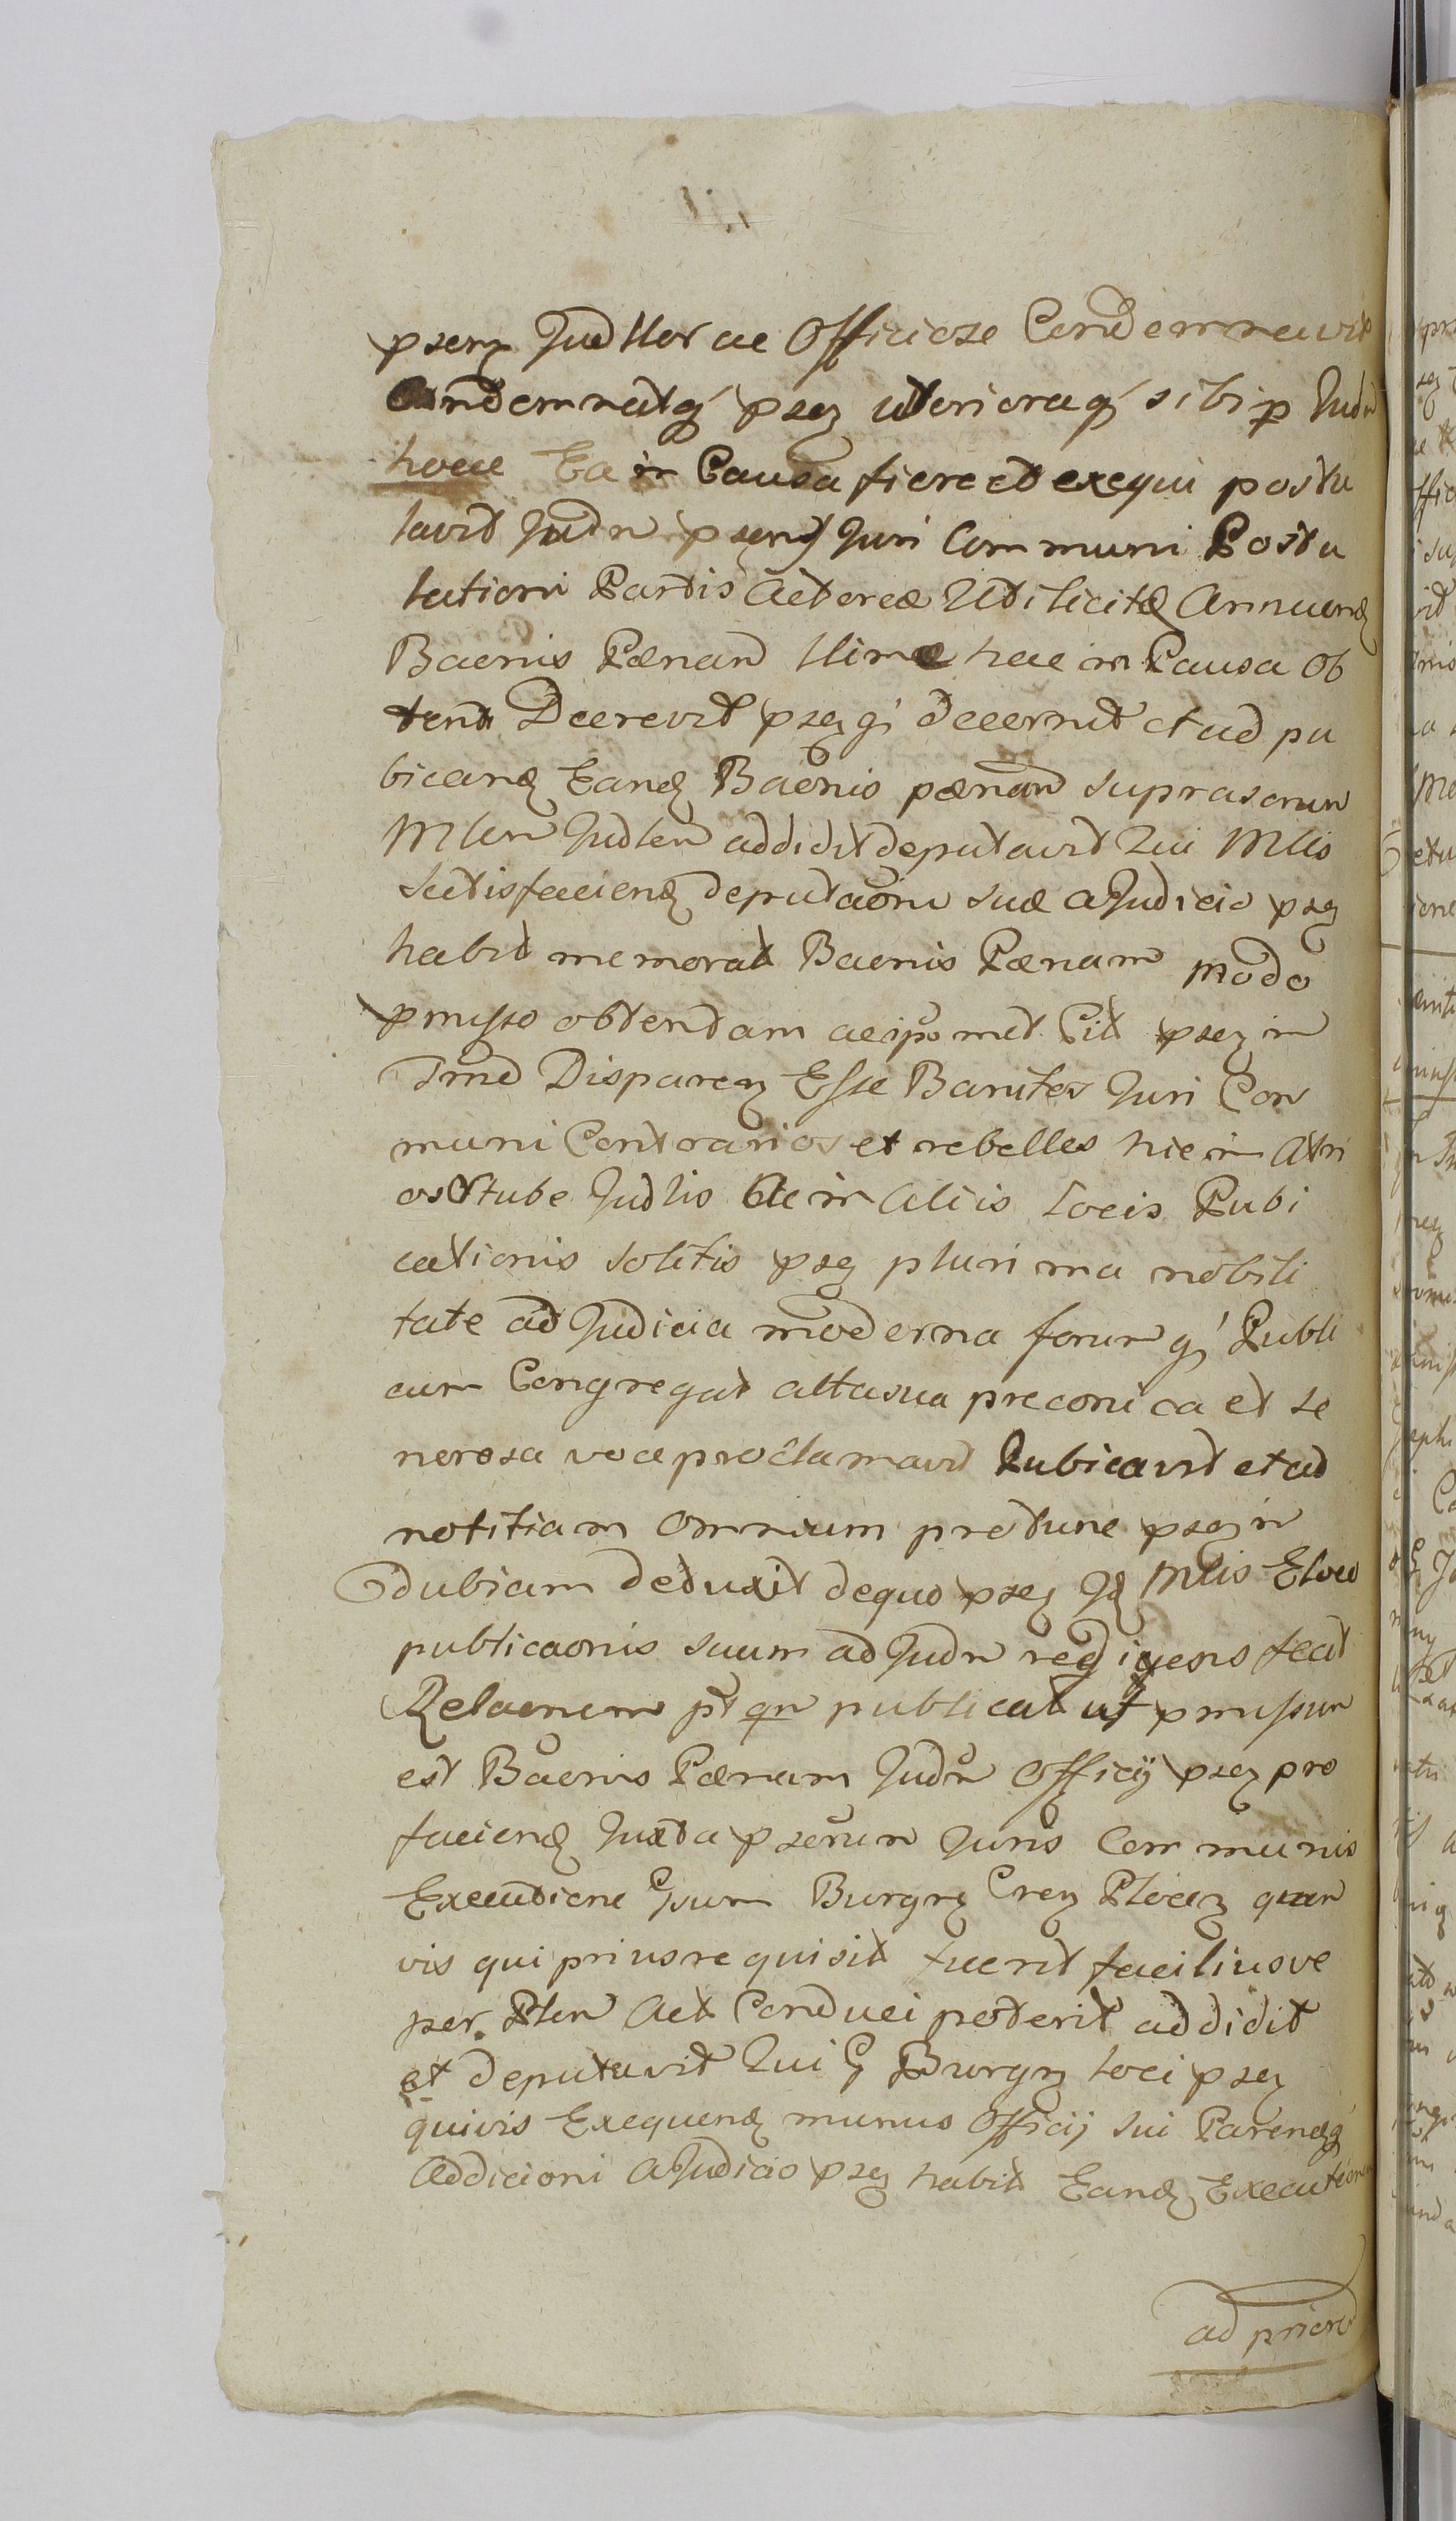 psenẓ Judtler ac Officiose Condemnavit
Condemnatq́ pseẓ ulterioraq́ sibi p Judm
hocce Ea in Causa fiere et exequi postu
lavit Judm psens Juri Communi Postu
lationi Partis Actoreæ Uti licitæ Annuenď
Baenis Pænam hac in Causa Ob
tent Decrevit pseẓ q́ decernit et ad pu
bicanď Eanď Baenis pænam suprascrum
Mlem Judlem addidit deputavit Qui Mlis
Satisfacienď deputaoni suæ a Judicio pseẓ
habit memorat Baenis Pænam modo
pmisso obtentam ac ipomet Cit pseẓ in
Tmd Disparenẓ Esse Banitos Juri Com
muni Contrarios et rebelles hic in Atri
o Stubæ Judlis ac in Aliis Locis Pubi
cationis Solitis pseẓ plurima nobili
tate ad Judicia moderna forum q́ Publi
cum Congregat alta sua preconica et se
nerosa voce proclamavit Pubicavit et ad
notitiam omnium protunc pseẓ in
dubiam deduxit de quo pseẓ Iď Mlis Eloco
publicaonis suum ad Judm redigens fecit
Relaonem pt qm publicat ut pmissum
est Baenis Pænam Judm Officij pseẓ pro
facienď Juxta pserum Juris Communis
Executione Gsum Burgrẓ Crenẓ Plocenẓ quem
vis qui prius requisit fuerit faciliusve
per Ptem Act Conduci poterit addidit
et deputavit Qui G Burgrẓ loci pseẓ
quivis Exequenď munus Officij sui Parenďq́
Addicioni a Judicio pseẓ habit Eanď Executionem
ad priora